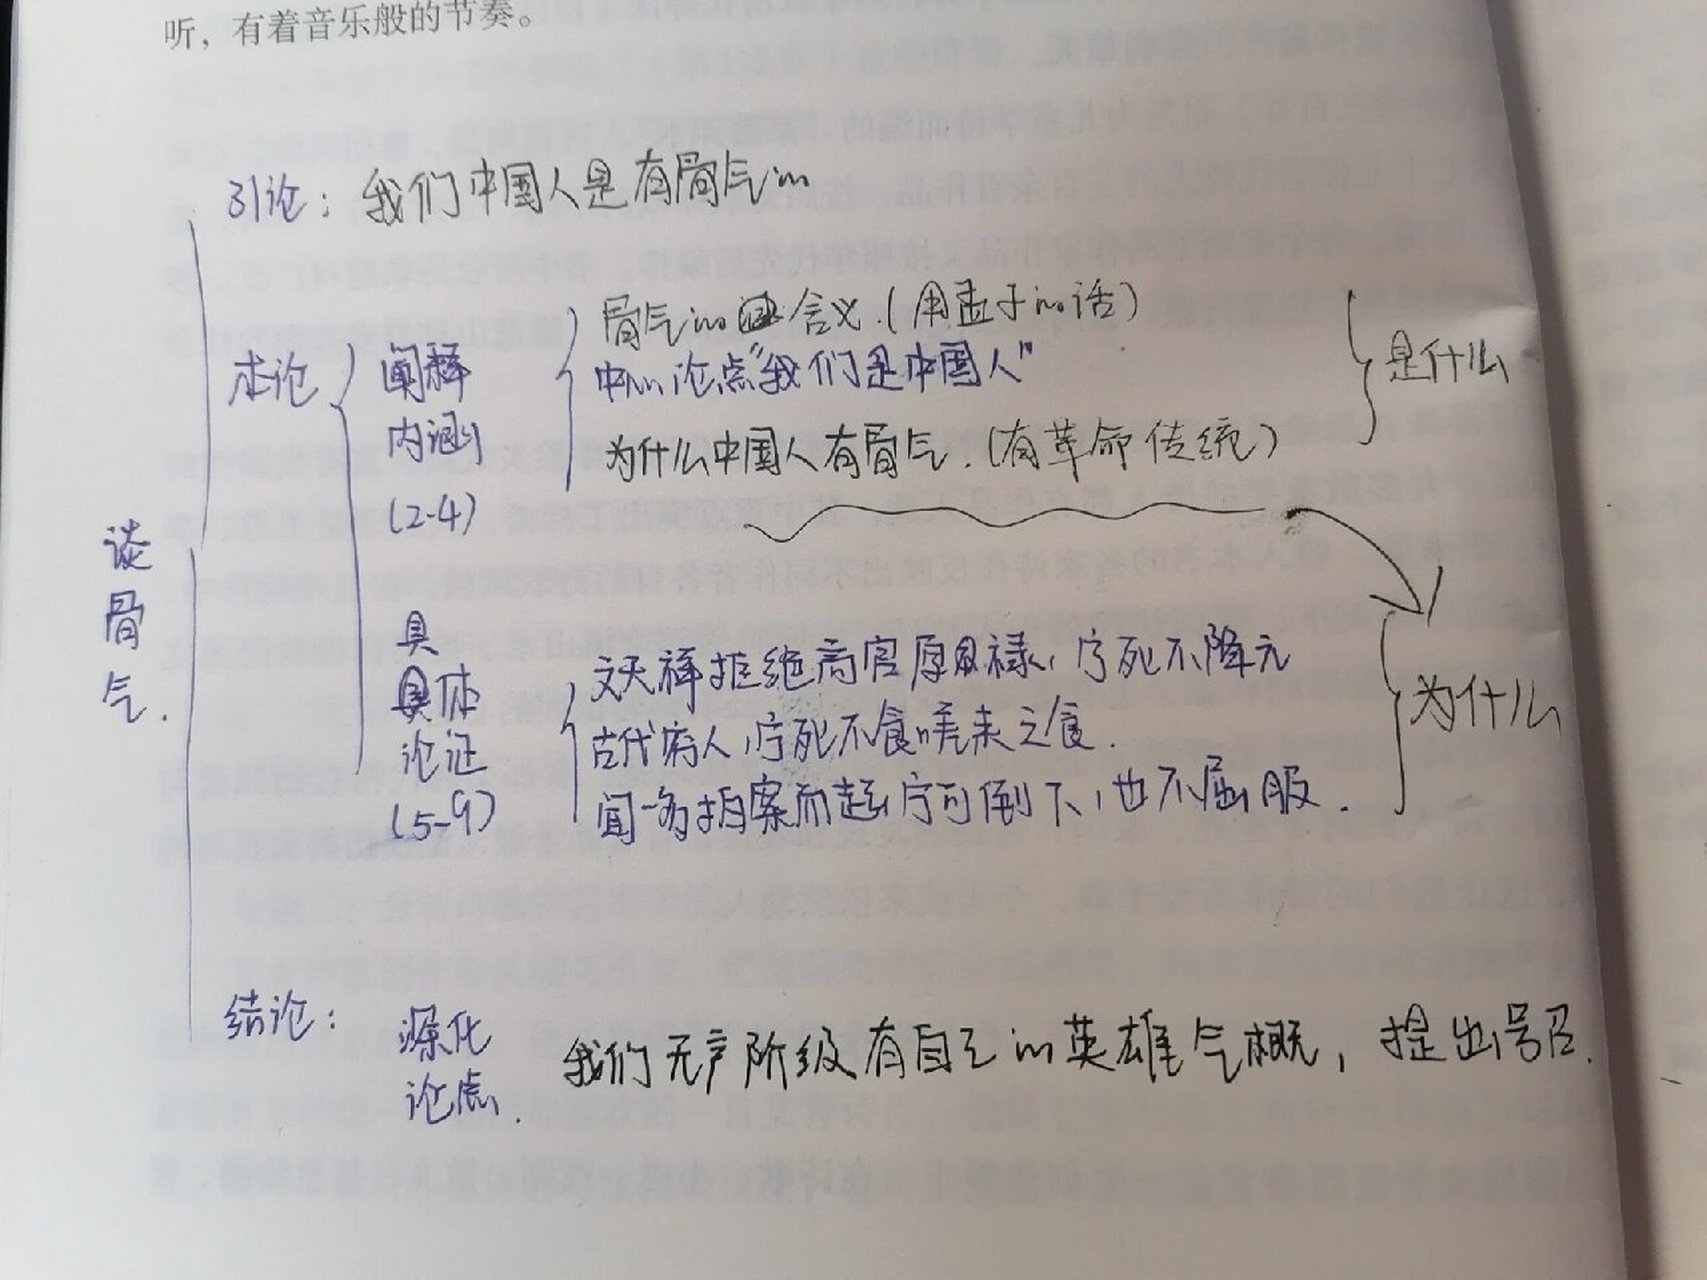 听，有着音乐般的节奏。
引论：我们中国人是有骨气的
本论
阐释
内涵
(2-4)
骨气的含义.(用孟子的话)
中心论点"我们是中国人"
为什么中国人有骨气.(有革命传统)
是什么
谈
骨
气.
具
具体
论证
(5-9)
文天祥拒绝高官厚禄,宁死不降元
古代穷人,宁死不食嗟来之食.
闻一多拍案而起宁可倒下,也不屈服.
为什么
结论：
深化
论点.
我们无产阶级有自己的英雄气概，提出号召.